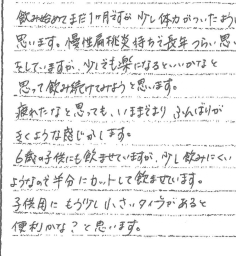 飲み始めてまだ1ヶ月ですが少し体力がついたように
思います。慢性扁桃炎持ちで長年つらい思い
をしていますが、少しでも楽になるといいかなと
思って飲み続けてみようと思います。
疲れたなと思っても、いままでより ふんばりが
きくような感じがします。
6歳の子供にも飲ませていますが、少し飲みにくい
ようなので半分にカットして飲ませています。
子供用に もう少し小さいタイプがあると
便利かな？と思います。